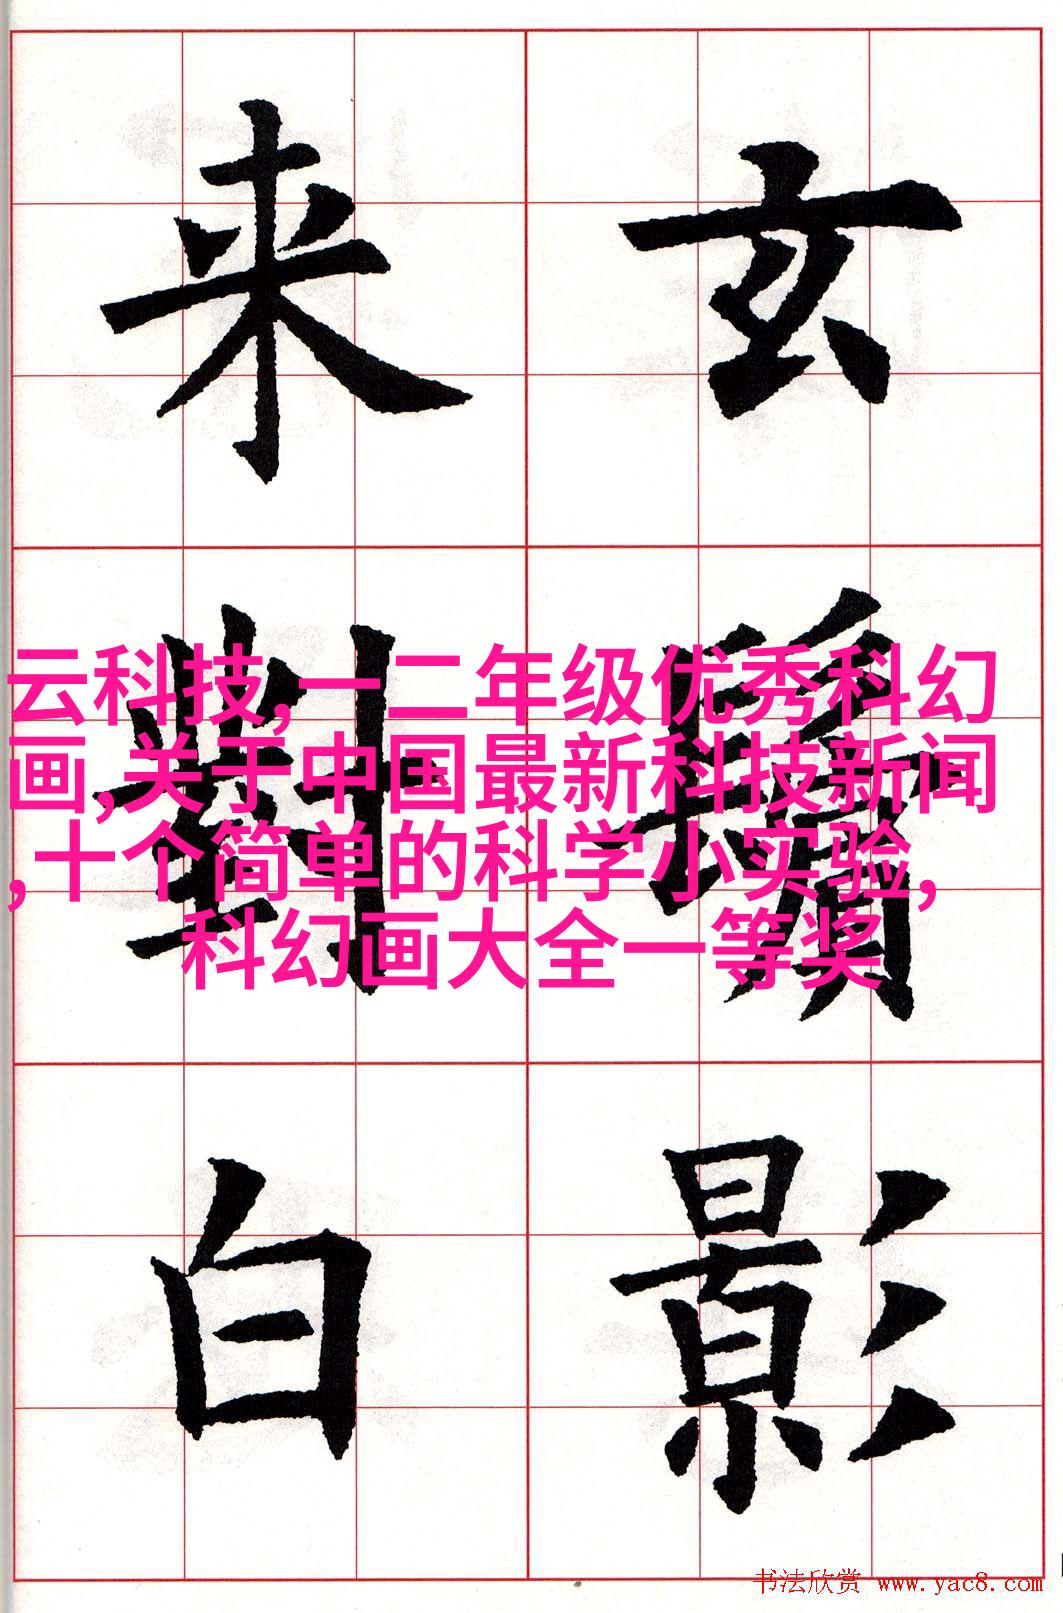 玄鬢影
来對白
云科技,一二年级优秀科幻
画,关于中国最新科技新闻
,十个简单的科学小实验,
科幻画大全一等奖
书法欣赏 www.yac8.com